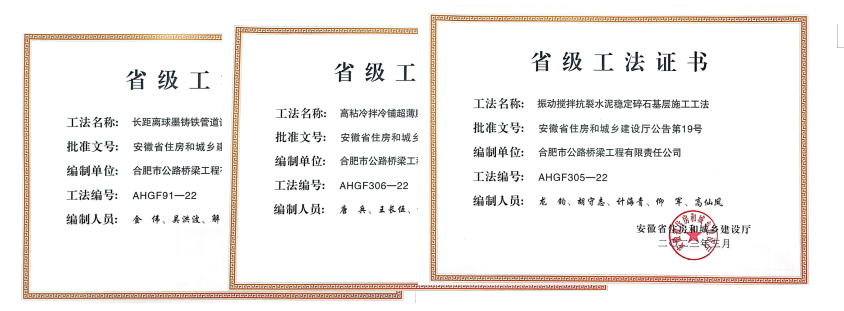 省级工
工法名称: 长距离球墨铸铁管道
批准文号: 安徽省住房和城乡
编制单位: 合肥市公路桥梁工程
工法编号: AHGF91—22
编制人员: 金 伟、吴洪波、解
省级工
工法名称: 高粘冷拌冷铺超薄
批准文号: 安徽省住房和城乡
编制单位: 合肥市公路桥梁工
工法编号: AHGF306—22
编制人员: 唐 兵、王长伍、
省级工法证书
工法名称: 振动搅拌抗裂水泥稳定碎石基层施工工法
批准文号: 安徽省住房和城乡建设厅公告第19号
编制单位: 合肥市公路桥梁工程有限责任公司
工法编号: AHGF305—22
编制人员: 龙 钧、胡守志、计海青、仰 军、高仙凤
安徽省住房和城乡建设厅